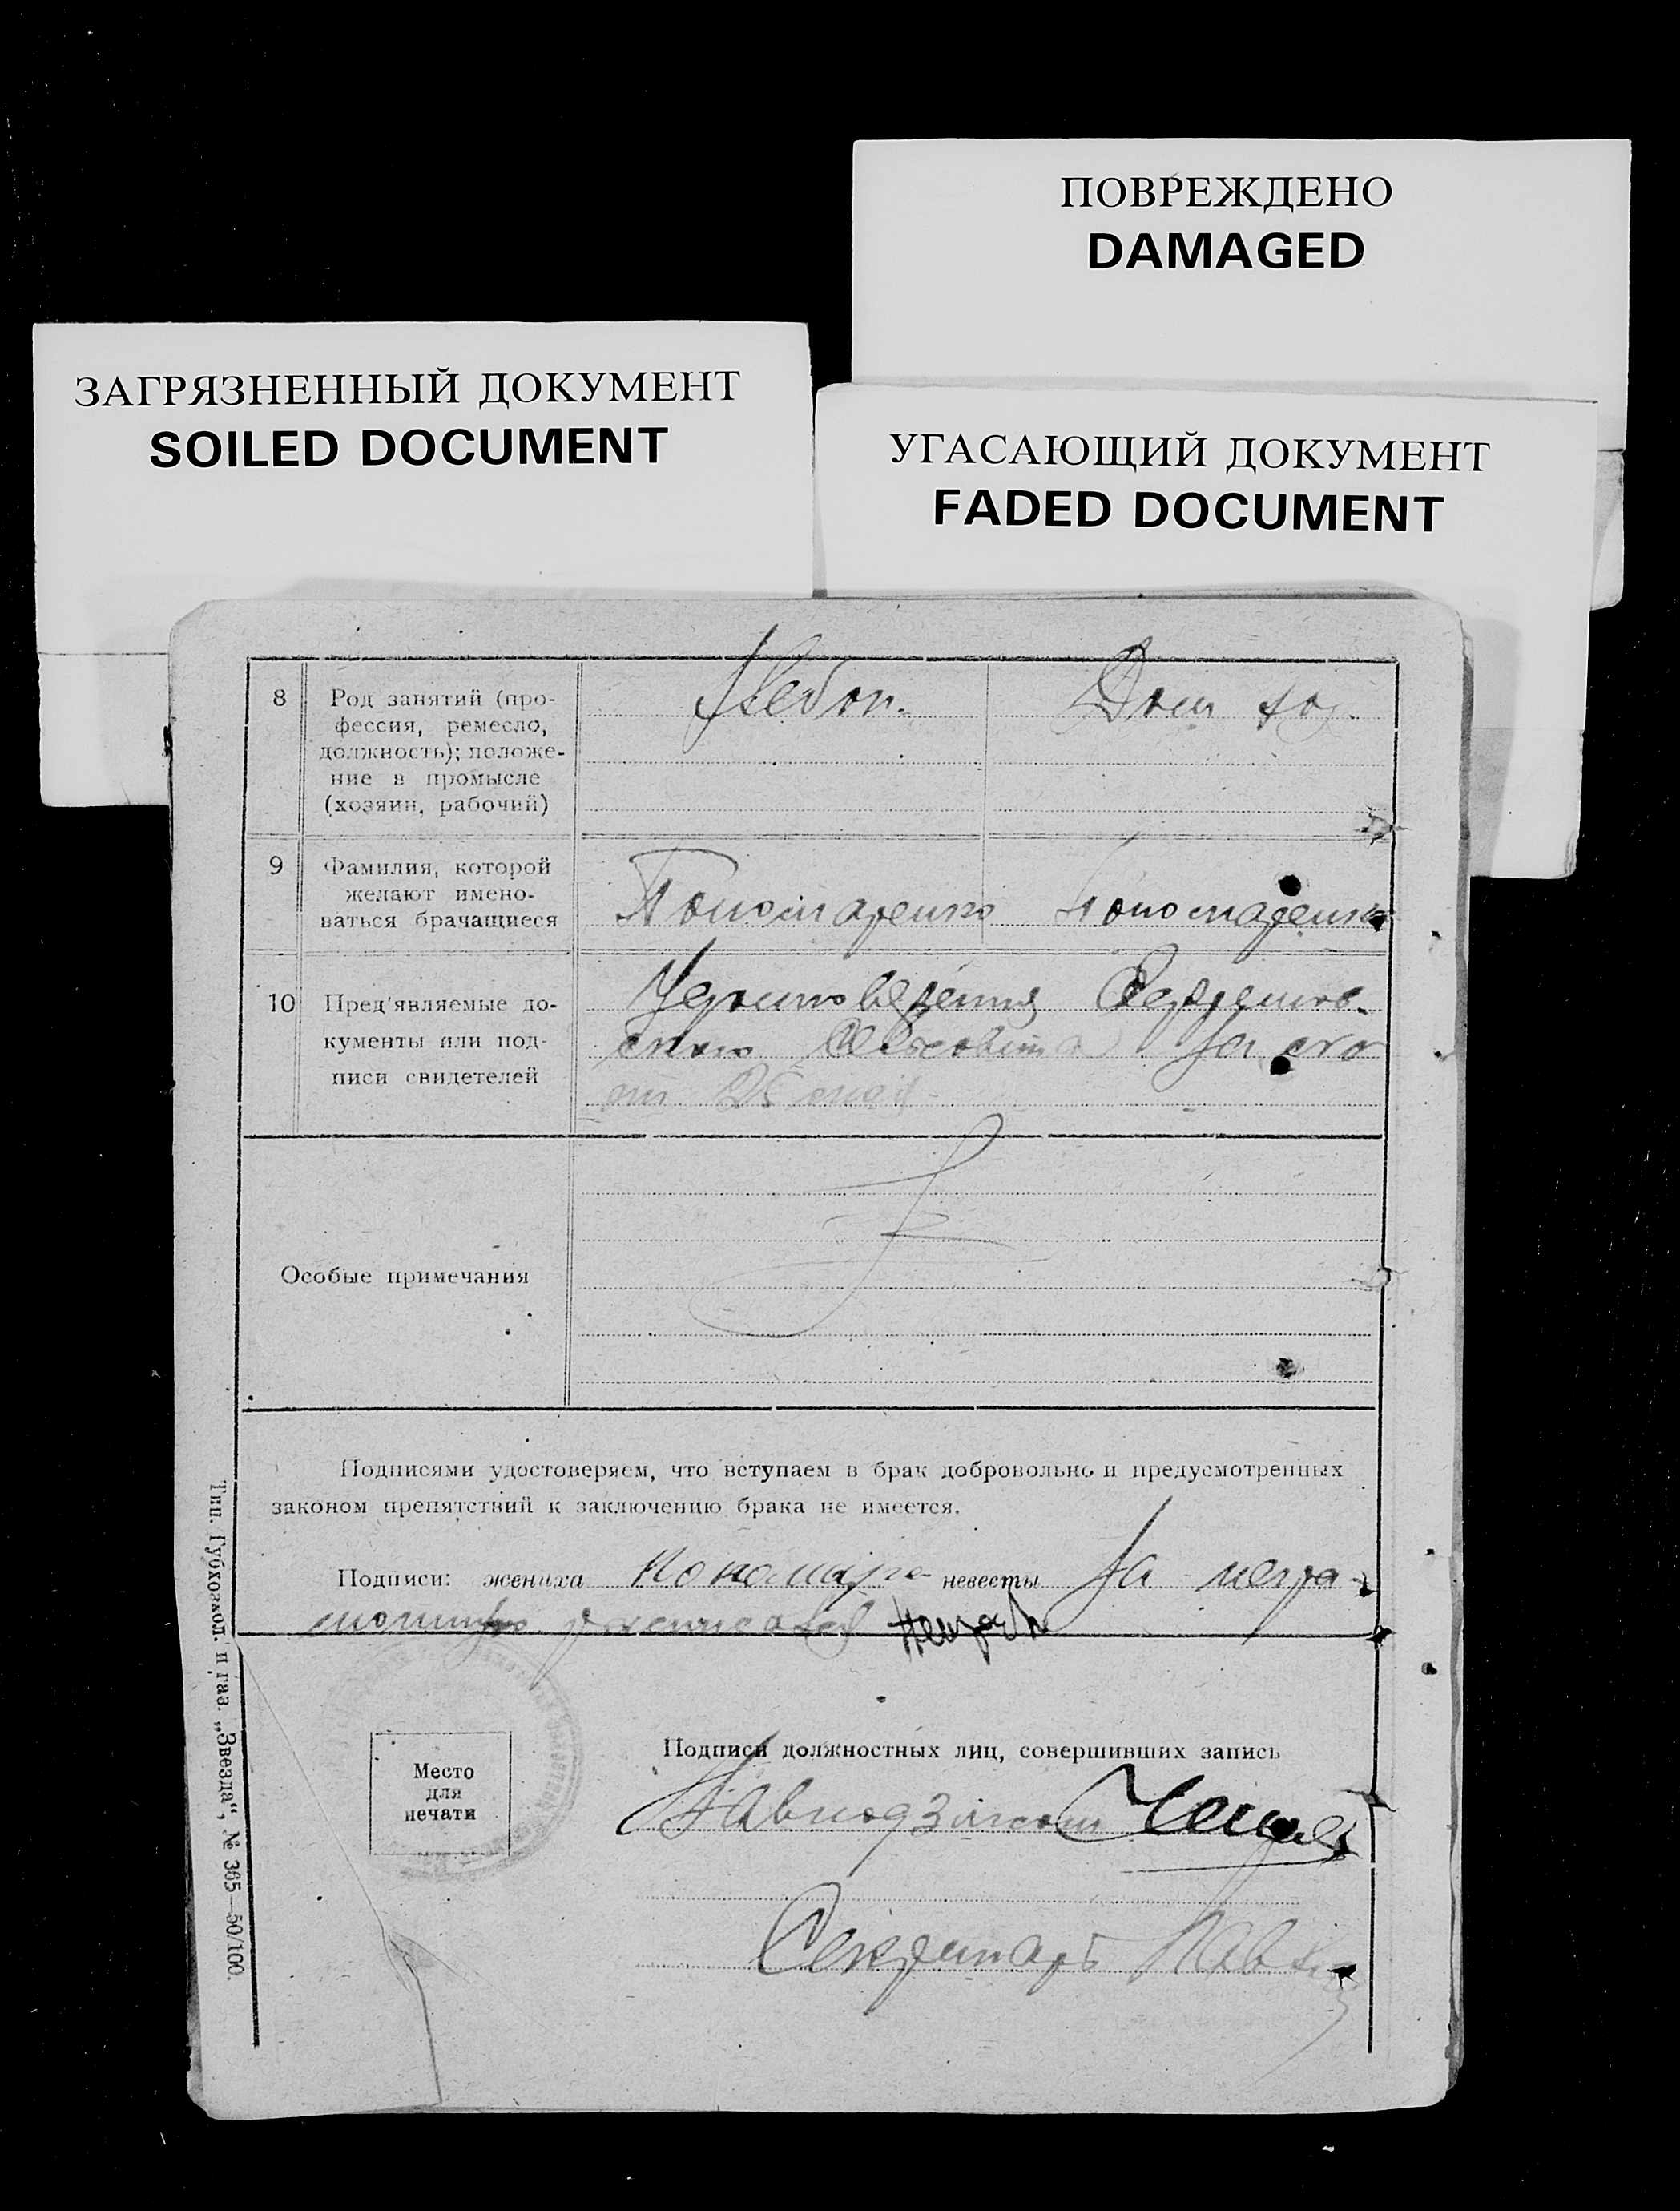 ПОВРЕЖДЕНО
DAMAGED
ЗАГРЯЗНЕННЫЙ ДОКУМЕНТ
SOILED DOCUMENT
УГАСАЮЩИЙ ДОКУМЕНТ
FADED DOCUMENT
8 Род занятий (про-
фессия, ремесло,
должность); положе-
ние в промысле
(хозяин, рабочий)
Хлебоп. Дом хоз.
9 Фамилия, которой
желают имено-
ваться брачащиеся
Пономаренко Пономаренко
10 Пред'являемые до-
кументы или под-
писи свидетелей
от 25 мая
Особые примечания
Подписями удостоверяем, что вступаем в брак добровольно и предусмотренных
законом препятствий к заключению брака не имеется.
Подписи: жениха невесты За негра-
мотную
Место
для
печати
Подписи должностных лиц, совершивших запись
Секретарь
Тип. Губхозлеп. и газ. „Звезда“, № 365—50/100.